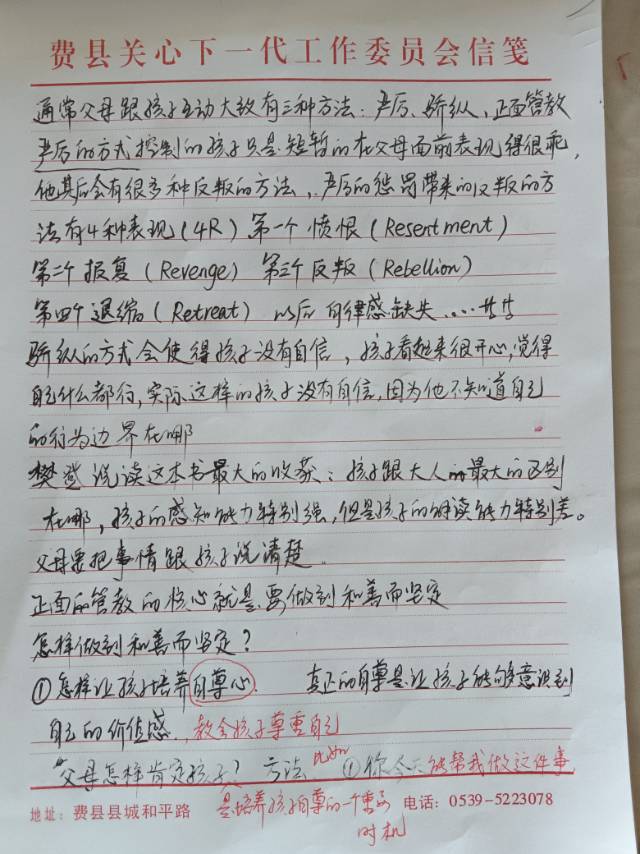 费县关心下一代工作委员会信笺
通常父母跟孩子互动大致有三种方法:严厉、骄纵、正面管教
严厉的方式控制的孩子只是短暂的在父母面前表现得很乖,
他其后会有很多种反叛的方法,严厉的惩罚带来的反叛的方
法有4种表现(4R)第一个愤恨(Resentment)
第二个报复(Revenge) 第三个反叛(Rebellion)
第四个退缩(Retreat) 以后自律感缺失....
骄纵的方式会使得孩子没有自信,孩子看起来很开心,觉得
自己什么都行,实际这样的孩子没有自信,因为他不知道自己
的行为边界在哪
樊登说读这本书最大的收获:孩子跟大人的最大的区别
在哪,孩子的感知能力特别强,但是孩子的解读能力特别差。
父母要把事情跟孩子说清楚.
正面的管教的核心就是要做到和善而坚定
怎样做到和善而坚定?
①怎样让孩子培养自尊心. 真正的自尊是让孩子能够意识到
自己的价值感,教会孩子尊重自己
父母怎样肯定孩子?方法 比如 ①你今天能帮我做这件事
是培养孩子自尊的一个重要
时机
地址:费县县城和平路 电话:0539-5223078